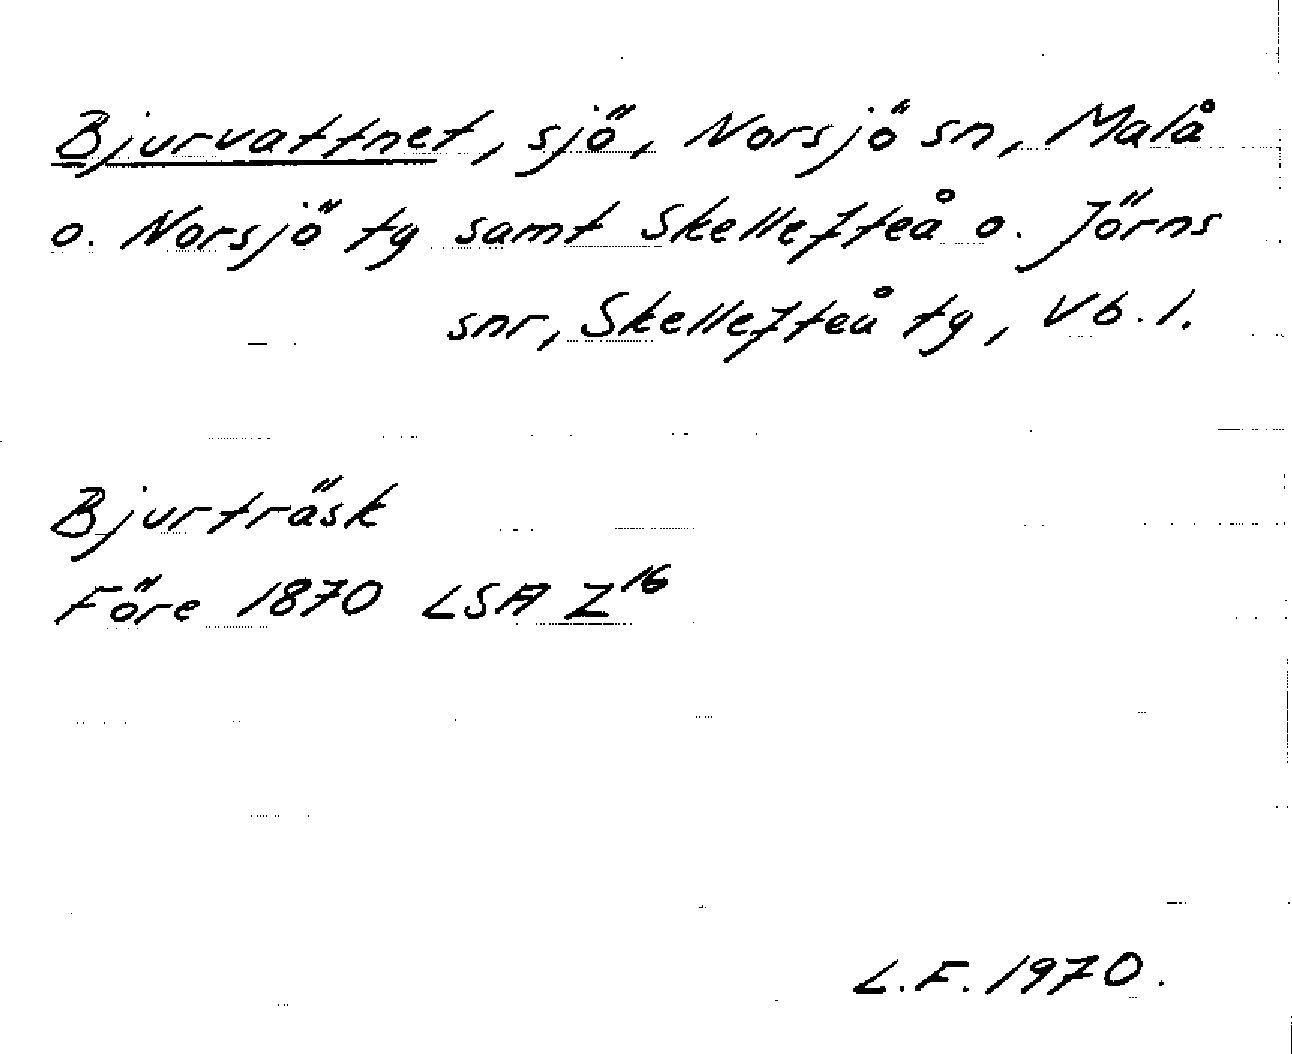 Bjurvattnet, sjö, Norsjö sn, Malå
o. Norsjö tg samt Skellefteå o. Jörns
snr, Skellefteå tg, Vb. l.
Bjurträsk
Före 1870 LSA Z16
L.F. 1970.